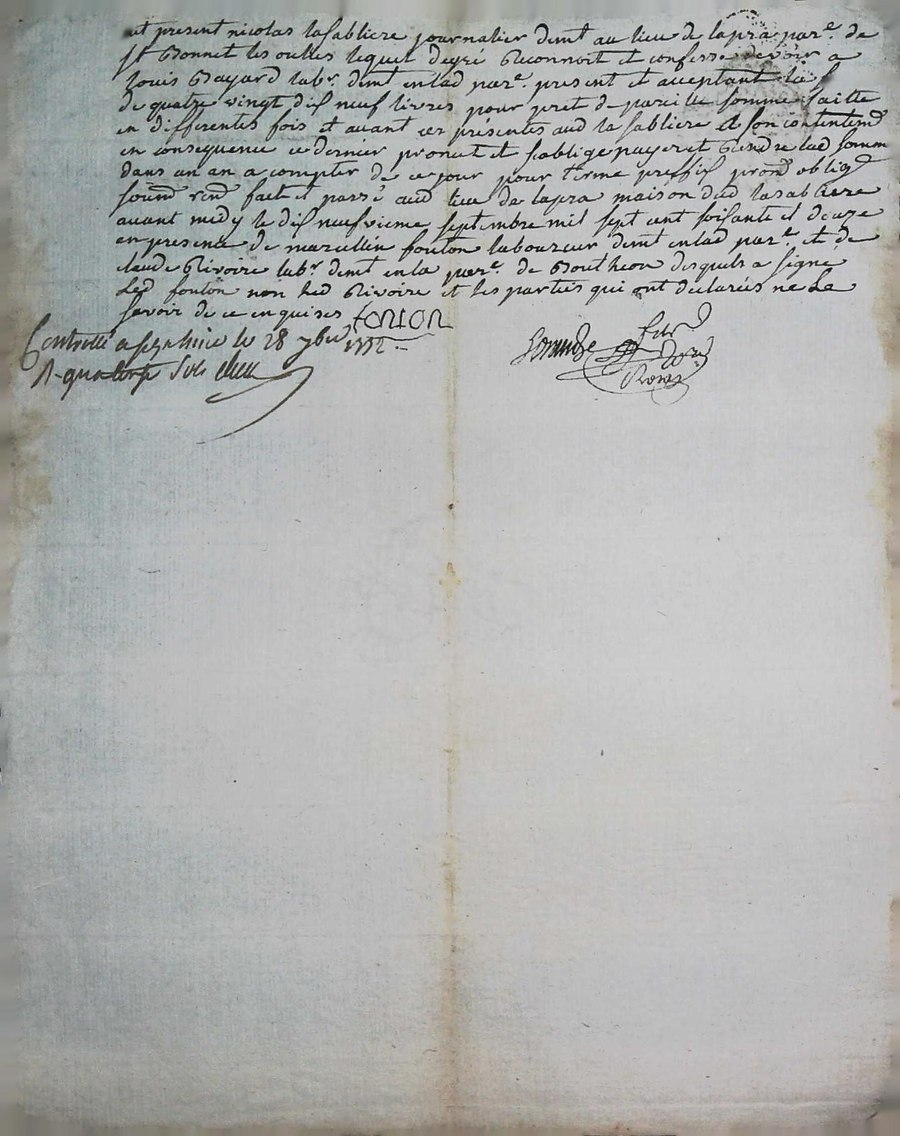 est present nicolas lasabliere journalier demt au lieu de lapra par.e de
st Bonnet les oulles lequel degré Reconnoit et confesse devoir a
louis Bayard labr. demt enlad par.e present et acceptant la so
de quatre vingt dix neuf livres pour pret de pareille somme faitte
en differentes fois et avant ces presentes aud lasabliere et son contentem
en consequence ce dernier promet et soblige payer et Rendre lad somm
dans un an a compter de ce jour pour terme preffix prom obliq
soum ren fait et passé aud lieu de lapra maison dud lasabliere
avant midy le dix neufvieme septembre mil sept cent soisante et douze
en presence de marcellin fonton laboureur demt enlad par.e et de
claude Rivoire labr demt en la par.e de Boutheon desquels a signé
led fonton non led Rivoire et les parties qui ont declarées ne le
savoir de ce enquises fonton
Controllé a le 28 7bre 1772
R quatorze sols